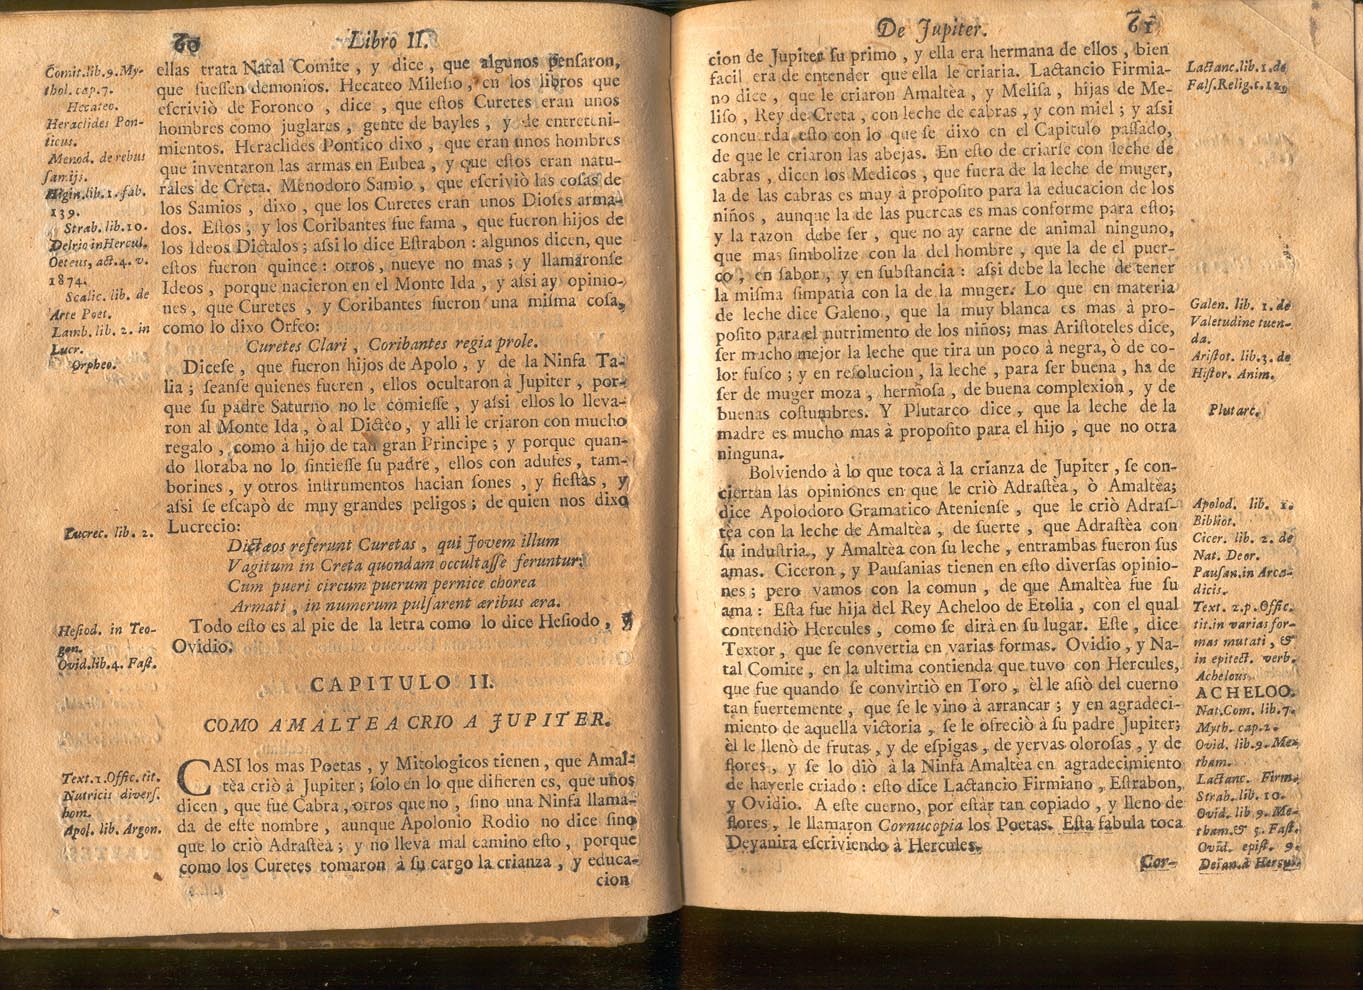 60
Libro II.
Comit. lib. 9. My-
thol. cap. 7.
Hecateo.
Heraclides Pon-
ticus.
Menod. de rebus
samijs.
Higin. lib. 1. fab.
139.
Strab. lib. 10.
Delrio in Hercul.
Oeteus, act. 4. v.
1874.
Scalic. lib. de
Arte Poet.
Lamb. lib. 2. in
Lucr.
Orpheo.
ellas trata Natal Comite , y dice , que algunos pensaron,
que fuessen demonios. Hecateo Milesio , en los libros que
escriviò de Foroneo , dice , que estos Curetes eran unos
hombres como juglares , gente de bayles , y de entreteni-
mientos. Heraclides Pontico dixo , que eran unos hombres
que inventaron las armas en Eubea , y que estos eran natu-
rales de Creta. Menodoro Samio , que escriviò las cosas de
los Samios , dixo , que los Curetes eran unos Dioses arma-
dos. Estos , y los Coribantes fue fama , que fueron hijos de
los Ideos Dictalos ; assi lo dice Estrabon : algunos dicen, que
estos fueron quince : otros , nueve no mas ; y llamaronse
Ideos , porque nacieron en el Monte Ida , y assi ay opinio-
nes , que Curetes , y Coribantes fueron una misma cosa,
como lo dixo Orfeo:
Curetes Clari , Coribantes regia prole.
Dicese , que fueron hijos de Apolo , y de la Ninfa Ta-
lia ; seanse quienes fueren , ellos ocultaron à Jupiter , por-
que su padre Saturno no le comiesse , y assi ellos lo lleva-
ron al Monte Ida , ò al Dicteo , y alli le criaron con mucho
regalo , como à hijo de tan gran Principe ; y porque quan-
do lloraba no lo sintiesse su padre , ellos con adufes , tam-
borines , y otros instrumentos hacian sones , y fiestas , y
assi se escapò de muy grandes peligos ; de quien nos dixo
Lucrecio:
Lucrec. lib. 2.
Dictæos referunt Curetas , qui Jovem illum
Vagitum in Creta quondam occultasse feruntur:
Cum pueri circum puerum pernice chorea
Armati , in numerum pulsarent æribus æra.
Hesiod. in Teo-
gon.
Ovid. lib. 4. Fast.
Todo esto es al pie de la letra como lo dice Hesiodo , y
Ovidio.
CAPITULO II.
COMO AMALTEA CRIO A JUPITER.
Text. 1. Offic. tit.
Nutricis divers.
hom.
Apol. lib. Argon.
CASI los mas Poetas , y Mitologicos tienen , que Amal-
tèa criò à Jupiter ; solo en lo que difieren es, que unos
dicen , que fue Cabra , otros que no , sino una Ninfa llama-
da de este nombre , aunque Apolonio Rodio no dice sino
que lo criò Adrastèa ; y no lleva mal camino esto , porque
como los Curetes tomaron à su cargo la crianza , y educa-
cion
De Jupiter.
61
cion de Jupiter su primo , y ella era hermana de ellos , bien
facil era de entender que ella le criaria. Lactancio Firmia-
no dice , que le criaron Amaltèa , y Melisa , hijas de Me-
liso , Rey de Creta , con leche de cabras , y con miel ; y assi
concuerda esto con lo que se dixo en el Capitulo passado,
de que le criaron las abejas. En esto de criarse con leche de
cabras , dicen los Medicos , que fuera de la leche de muger,
la de las cabras es muy à proposito para la educacion de los
niños , aunque la de las puercas es mas conforme para esto;
y la razon debe ser , que no ay carne de animal ninguno,
que mas simbolize con la del hombre , que la de el puer-
co , en sabor , y en substancia : assi debe la leche de tener
la misma simpatia con la de la muger. Lo que en materia
de leche dice Galeno , que la muy blanca es mas à pro-
posito para el nutrimento de los niños; mas Aristoteles dice,
ser mucho mejor la leche que tira un poco à negra, ò de co-
lor fusco ; y en resolucion , la leche , para ser buena , ha de
ser de muger moza , hermosa , de buena complexion , y de
buenas costumbres. Y Plutarco dice , que la leche de la
madre es mucho mas à proposito para el hijo , que no otra
ninguna.
Lactanc. lib. 1. de
Fals. Relig. c. 12.
Galen. lib. 1. de
Valetudine tuen-
da.
Aristot. lib. 3. de
Histor. Anim.
Plutarc.
Bolviendo à lo que toca à la crianza de Jupiter , se con-
ciertan las opiniones en que le criò Adrastèa, ò Amaltèa;
dice Apolodoro Gramatico Ateniense , que le criò Adras-
tèa con la leche de Amaltèa , de suerte , que Adrastèa con
su industria , y Amaltèa con su leche , entrambas fueron sus
amas. Ciceron , y Pausanias tienen en esto diversas opinio-
nes ; pero vamos con la comun , de que Amaltèa fue su
ama : Esta fue hija del Rey Acheloo de Etolia , con el qual
contendiò Hercules , como se dirà en su lugar. Este , dice
Textor , que se convertia en varias formas. Ovidio , y Na-
tal Comite , en la ultima contienda que tuvo con Hercules,
que fue quando se convirtiò en Toro , èl le asiò del cuerno
tan fuertemente , que se le vino à arrancar ; y en agradeci-
miento de aquella victoria , se le ofreciò à su padre Jupiter;
èl le llenò de frutas , y de espigas , de yervas olorosas , y de
flores , y se lo diò à la Ninfa Amaltèa en agradecimiento
de haverle criado : esto dice Lactancio Firmiano , Estrabon,
y Ovidio. A este cuerno, por estàr tan copiado , y lleno de
flores , le llamaron Cornucopia los Poetas. Esta fabula toca
Deyanira escriviendo à Hercules.
Cor-
Apolod. lib. 1.
Bibliot.
Cicer. lib. 2. de
Nat. Deor.
Pausan. in Arca-
dicis.
Text. 2. p. Offic.
tit. in varias for-
mas mutati , &
in epitect. verb.
Achelous.
ACHELOO.
Nat. Com. lib. 7.
Myth. cap. 2.
Ovid. lib. 9. Me-
tham.
Lactanc. Firm.
Strab. lib. 10.
Ovid. lib. 9. Me-
tham. & 5. Fast.
Ovid. epist. 9.
Deian. à Hercul.